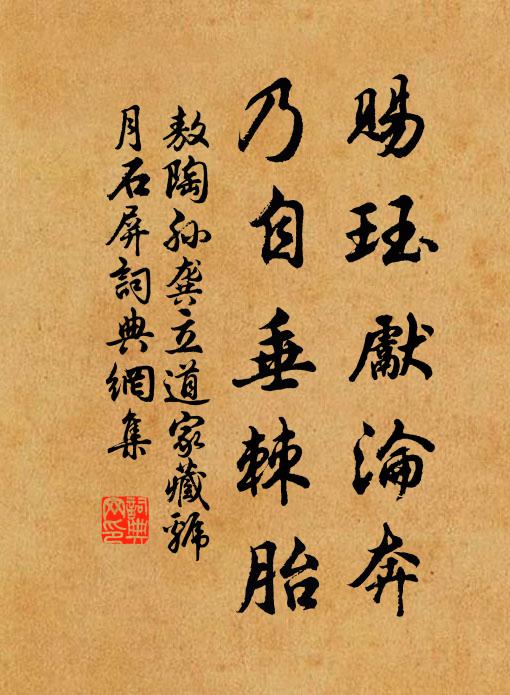 賜珏獻淪奔
乃自垂棘胎
敖陶孫龔立道家藏號
月石屏詞典網集
詞典
网印